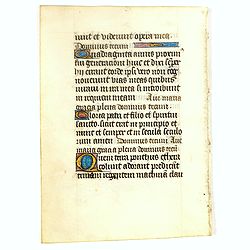 runt et viderunt opera mea.
Dominus tecum
Quadraginta annis proxim
fui generationi huic et dixi semper
hii errant corde ipsi vero non cog
noverunt vias meas quibus
iuravi in ira mea si introibunt
in requiem meam Ave maria
gracia plena dominus tecum
Gloria patri et filio et spiritui
sancto. sicut erat in principio et
nunc et semper et in secula seculo
rum amen Dominus tecum Ave
maria gracia plena dominus tecum
Quem terra ponthus ethera
colunt adorant predicant
trinam regentem machinam clau